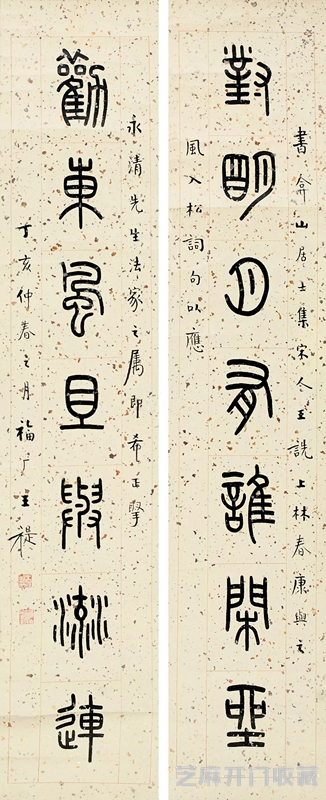 對明月有誰閑朢
勸東風且與流連
書弇山居士集宋人王詵上林春康與之
風入松詞句以應
永清先生法家之属即希正擥
丁亥仲春之月福厂王禔
芝麻开门收藏